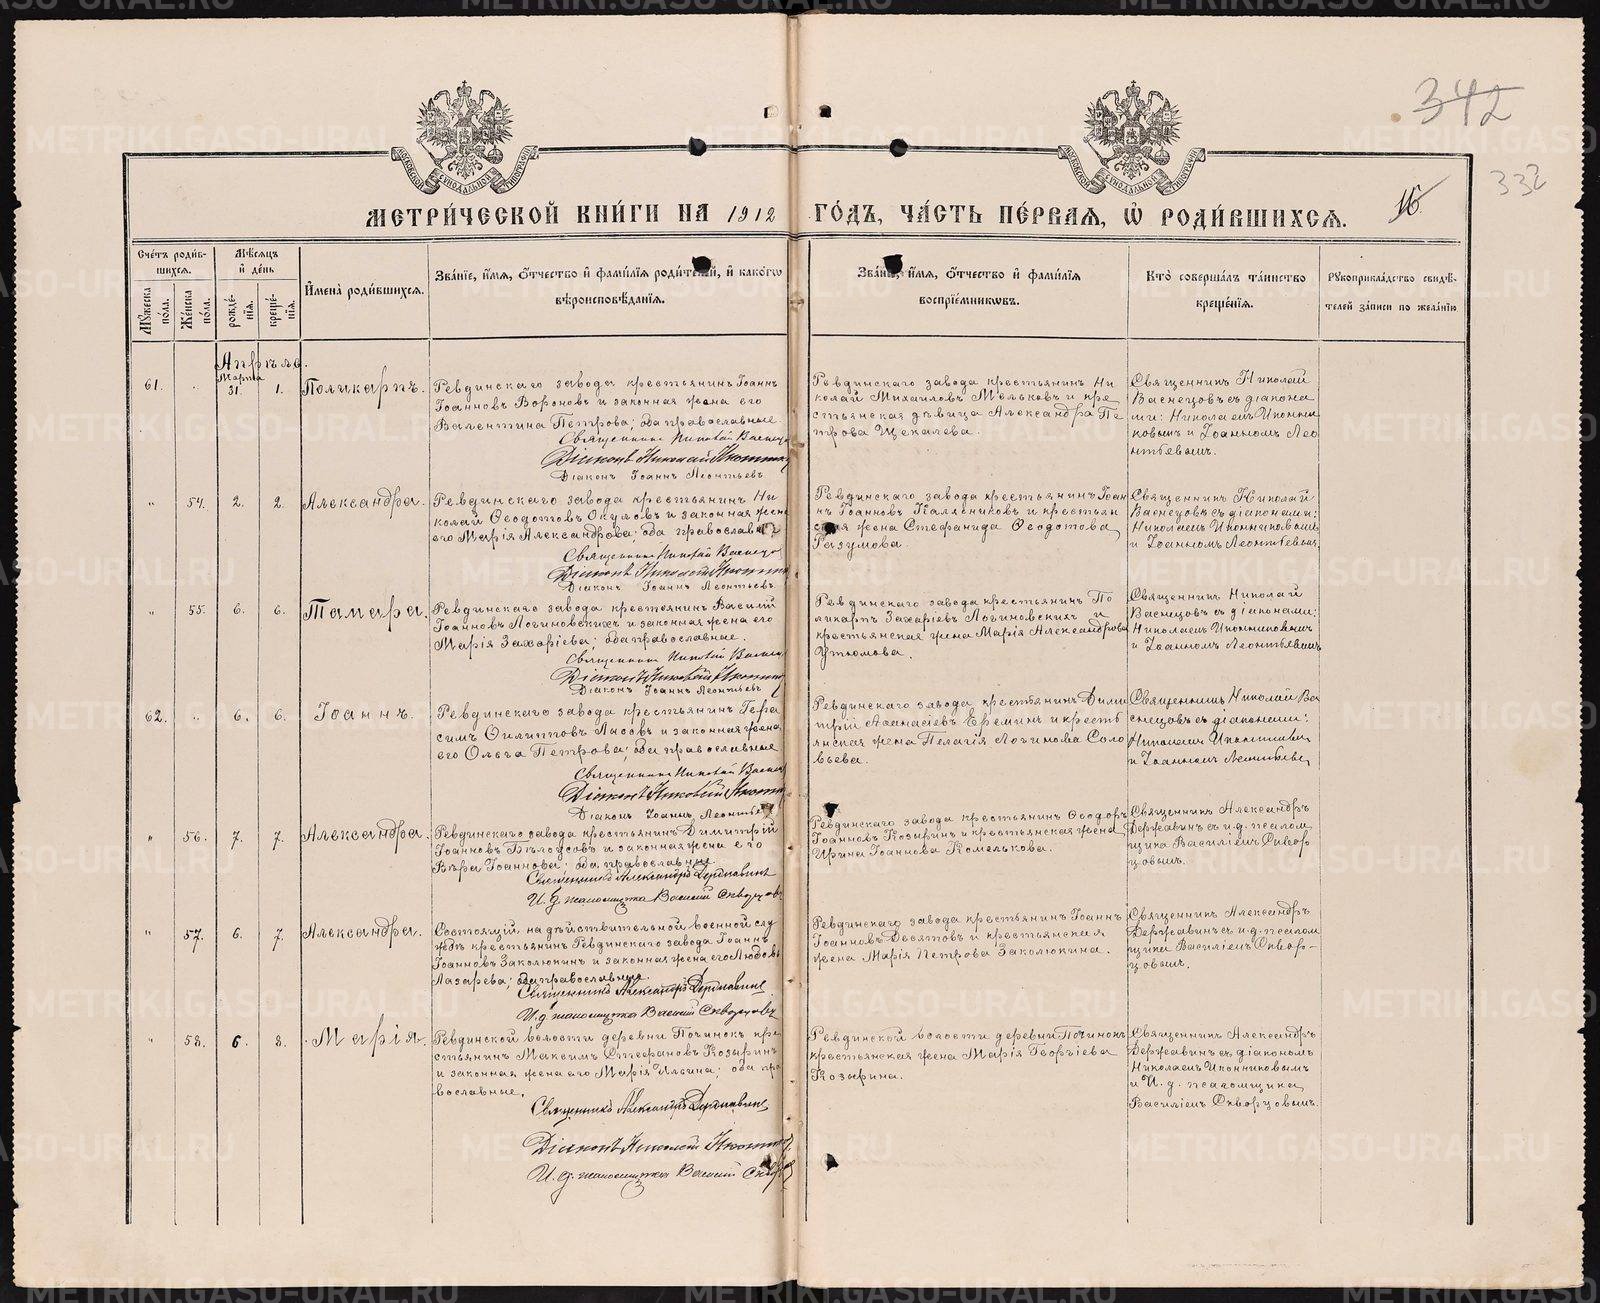 342
332
16
МЕТРИ́ЧЕСКОЙ КНИ́ГИ НА 1912 ГО́ДЪ, ЧА́СТЬ ПЕ́РВАЯ, Ѡ РОДИ́ВШИХСЯ.
Сче́тъ роди́в-
шихся.
Мѣ́сяцъ
и де́нь
Мꙋ́жеска
по́ла.
Же́нска
по́ла.
рожде́-
нїя.
креще́-
нїя.
И҆мена̀ роди́вшихся.
Зва́нїе, и҆́мя, ѻ҆́тчество и҆ фами́лїя роди́телей, и҆ како́гѡ
вѣроисповѣ́данїя.
Зва́нїе, и҆́мя, ѻ҆́тчество и҆ фами́лїя
воспрїе́мникѡвъ.
Кто̀ соверша́лъ та́инство
креще́нїя.
Рꙋкоприкла́дство свидѣ́-
телей за́писи по жела́нїю
Апрѣль.
61. " Марта 31. 1. Поликарпъ.
Ревдинскаго завода крестьянинъ Іоаннъ
Іоанновъ Вороновъ и законная жена его
Валентина Петрова; оба православные
Священникъ Николай Васнецо
Діаконъ Николай Иконник
Діаконъ Іоаннъ Леонтьевъ
Ревдинскаго завода крестьянинъ Ни
колай Михаиловъ Мельковъ и кре
стьянская дѣвица Александра Пе
трова Щекалева.
Священникъ Николай
Васнецовъ съ діакона
ми: Николаемъ Иконни
ковымъ и Іоанномъ Лео
нтьевымъ.
" 54. 2. 2. Александра.
Ревдинскаго завода крестьянинъ Ни
колай Ѳеодотовъ Окуловъ и законная жена
его Марія Александрова; оба православные
Священникъ Николай Васнецо
Діаконъ Николай Иконник
Діаконъ Іоаннъ Леонтьевъ
Ревдинскаго завода крестьянинъ Іоан
нъ Іоанновъ Калениковъ и крестьян
ская жена Стефанида Ѳеодотова
Разумова.
Священникъ Николай
Васнецовъ съ діаконами:
Николаемъ Иконниковымъ
и Іоанномъ Леонтьевымъ.
" 55. 6. 6. Тамара.
Ревдинскаго завода крестьянинъ Василій
Іоанновъ Логиновскихъ и законная жена его
Марія Захаріева; оба православные.
Священникъ Николай Васнецо
Діаконъ Николай Иконник
Діаконъ Іоаннъ Леонтьевъ
Ревдинскаго завода крестьянинъ По
ликарпъ Захаріевъ Логиновскихъ и
крестьянская жена Марія Александрова
Утюмова.
Священникъ Николай
Васнецовъ съ діаконами:
Николаемъ Иконниковымъ
и Іоанномъ Леонтьевымъ
62. " 6. 6. Іоаннъ.
Ревдинскаго завода крестьянинъ Гера
симъ Филипповъ Лысовъ и законная жена
его Ольга Петрова; оба православные
Священникъ Николай Васнец
Діаконъ Николай Иконни
Діаконъ Іоаннъ Леонтьев
Ревдинскаго завода крестьянинъ Дими
трій Аѳанасіевъ Ереминъ и кресть
янская жена Пелагія Логинова Соло
вьева.
Священникъ Николай Ва
снецовъ съ діаконами:
Николаемъ Иконниковы
и Іоанномъ Леонтьевы
" 56. 7. 7. Александра.
Ревдинскаго завода крестьянинъ Димитрій
Іоанновъ Бѣлоусовъ и законная жена его
Вѣра Іоаннова; оба православные
Священникъ Александръ Державинъ
И. д. псаломщика Василій Скворцовъ
Ревдинскаго завода крестьянинъ Ѳеодоръ
Іоанновъ Козыринъ и крестьянская жена
Ирина Іоаннова Комелькова.
Священникъ Александръ
Державинъ съ и. д. псалом
щика Василіемъ Сквор
цовымъ.
" 57. 6. 7. Александра.
Состоящій на дѣйствительной военной слу
жбѣ крестьянинъ Ревдинскаго завода Іоаннъ
Іоанновъ Заколюкинъ и законная жена его Любовь
Лазарева; оба православные.
Священникъ Александръ Державинъ
И. д. псаломщика Василій Скворцовъ
Ревдинскаго завода крестьянинъ Іоаннъ
Іоанновъ Десятовъ и крестьянская
жена Марія Петрова Заколюкина.
Священникъ Александръ
Державинъ съ и. д. псалом
щика Василіемъ Сквор-
цовымъ.
" 58. 6. 8. Марія.
Ревдинской волости деревни Починокъ кре
стьянинъ Максимъ Стефановъ Козыринъ
и законная жена его Марія Ильина; оба пра
вославные.
Священникъ Александръ Державинъ
Діаконъ Николай Иконник
И. д. псаломщика Василій Сквор
Ревдинской волости деревни Починокъ
крестьянская жена Марія Георгіева
Козырина.
Священникъ Александръ
Державинъ съ діакономъ
Николаемъ Иконниковымъ
и И. д. псаломщика
Василіемъ Скворцовымъ.
METRIKI.GASO-URAL.RU